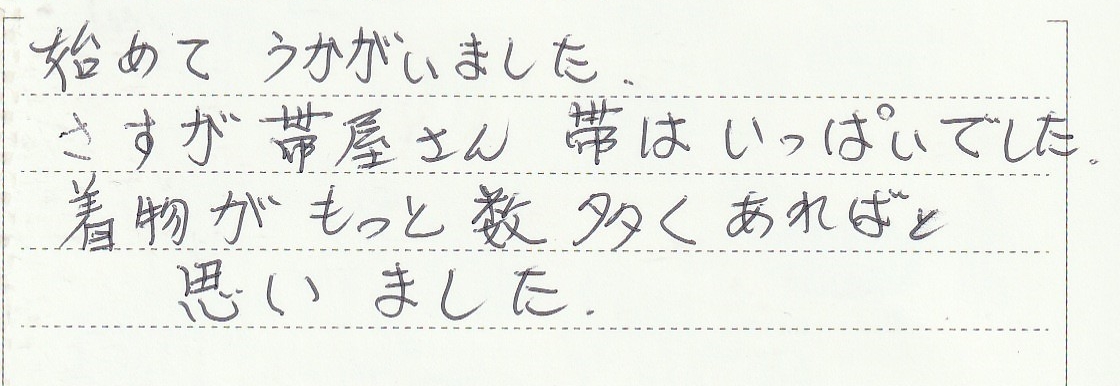 始めて うかがいました.
さすが 帯屋さん 帯は いっぱいでした.
着物が もっと 数 多く あればと
思い ました.